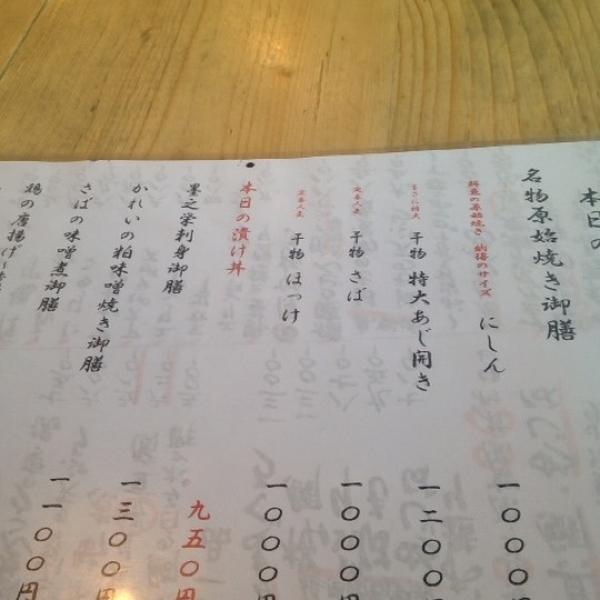 本日の
名物原始焼き御膳
鮮魚の原始焼き 納得のサイズ にしん
一〇〇〇円
まさに特大 干物 特大あじ開き
一二〇〇円
定番人気 干物 さば
一〇〇〇円
定番人気 干物 ほっけ
一〇〇〇円
本日の漬け丼
九五〇円
墨之栄刺身御膳
一三〇〇円
かれいの粕味噌焼き御膳
一一〇〇円
さばの味噌煮御膳
鶏の唐揚げ